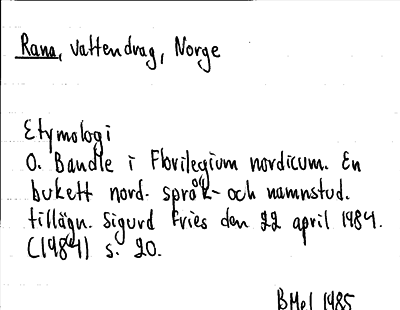 Rana, vattendrag, Norge
Etymologi
O. Bandle i Florilegium nordicum. En
bukett nord. språk- och namnstud.
tillägn. Sigurd Fries den 22 april 1984.
(1984) s. 20.
BMel 1985